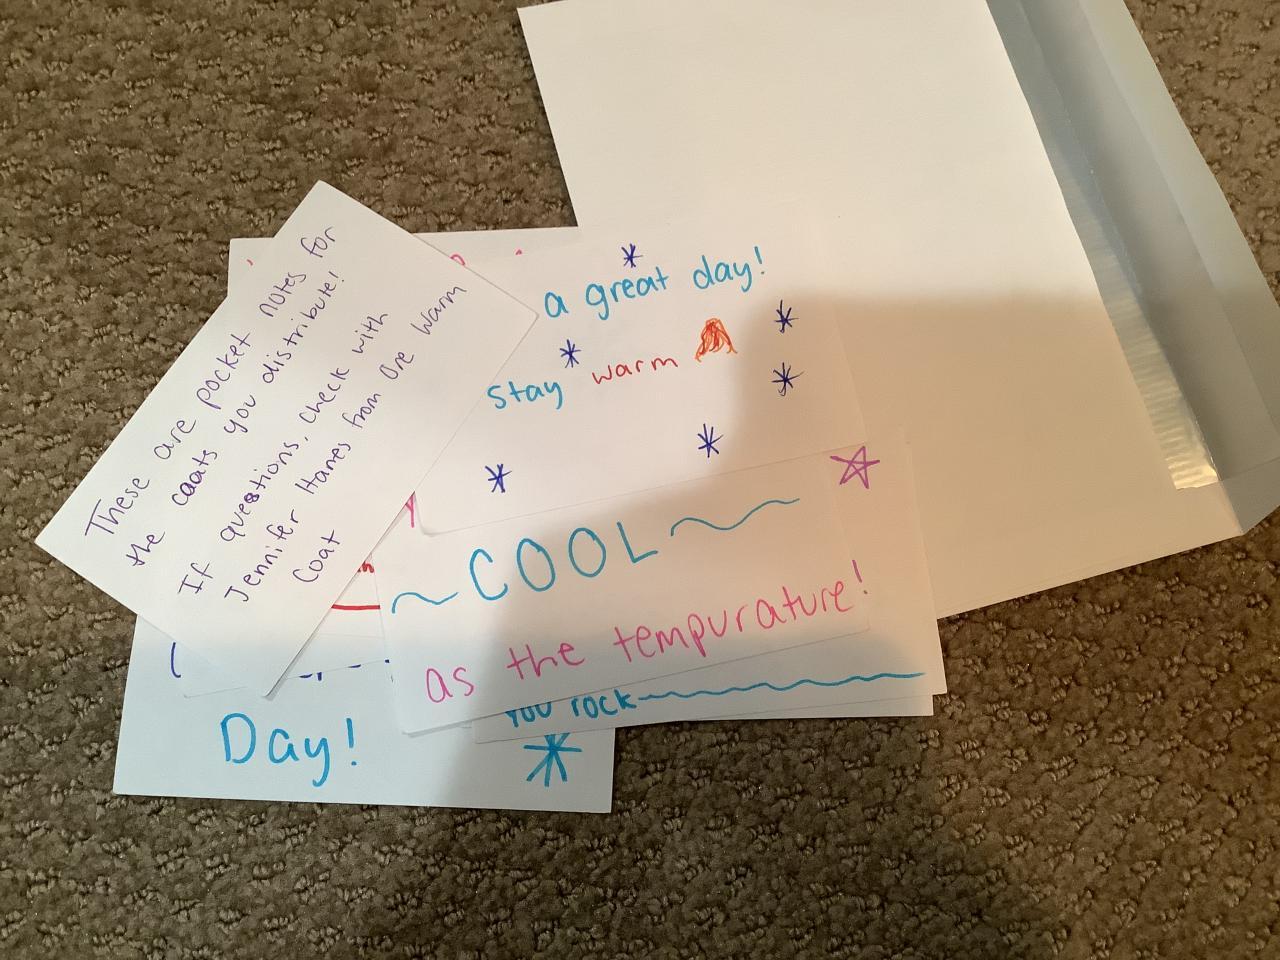 These are pocket notes for
the coats you distribute!
If questions, check with
Jennifer Hanes from One Warm
Coat
a great day!
Stay warm
~COOL~
as the tempurature!
You rock
Day!